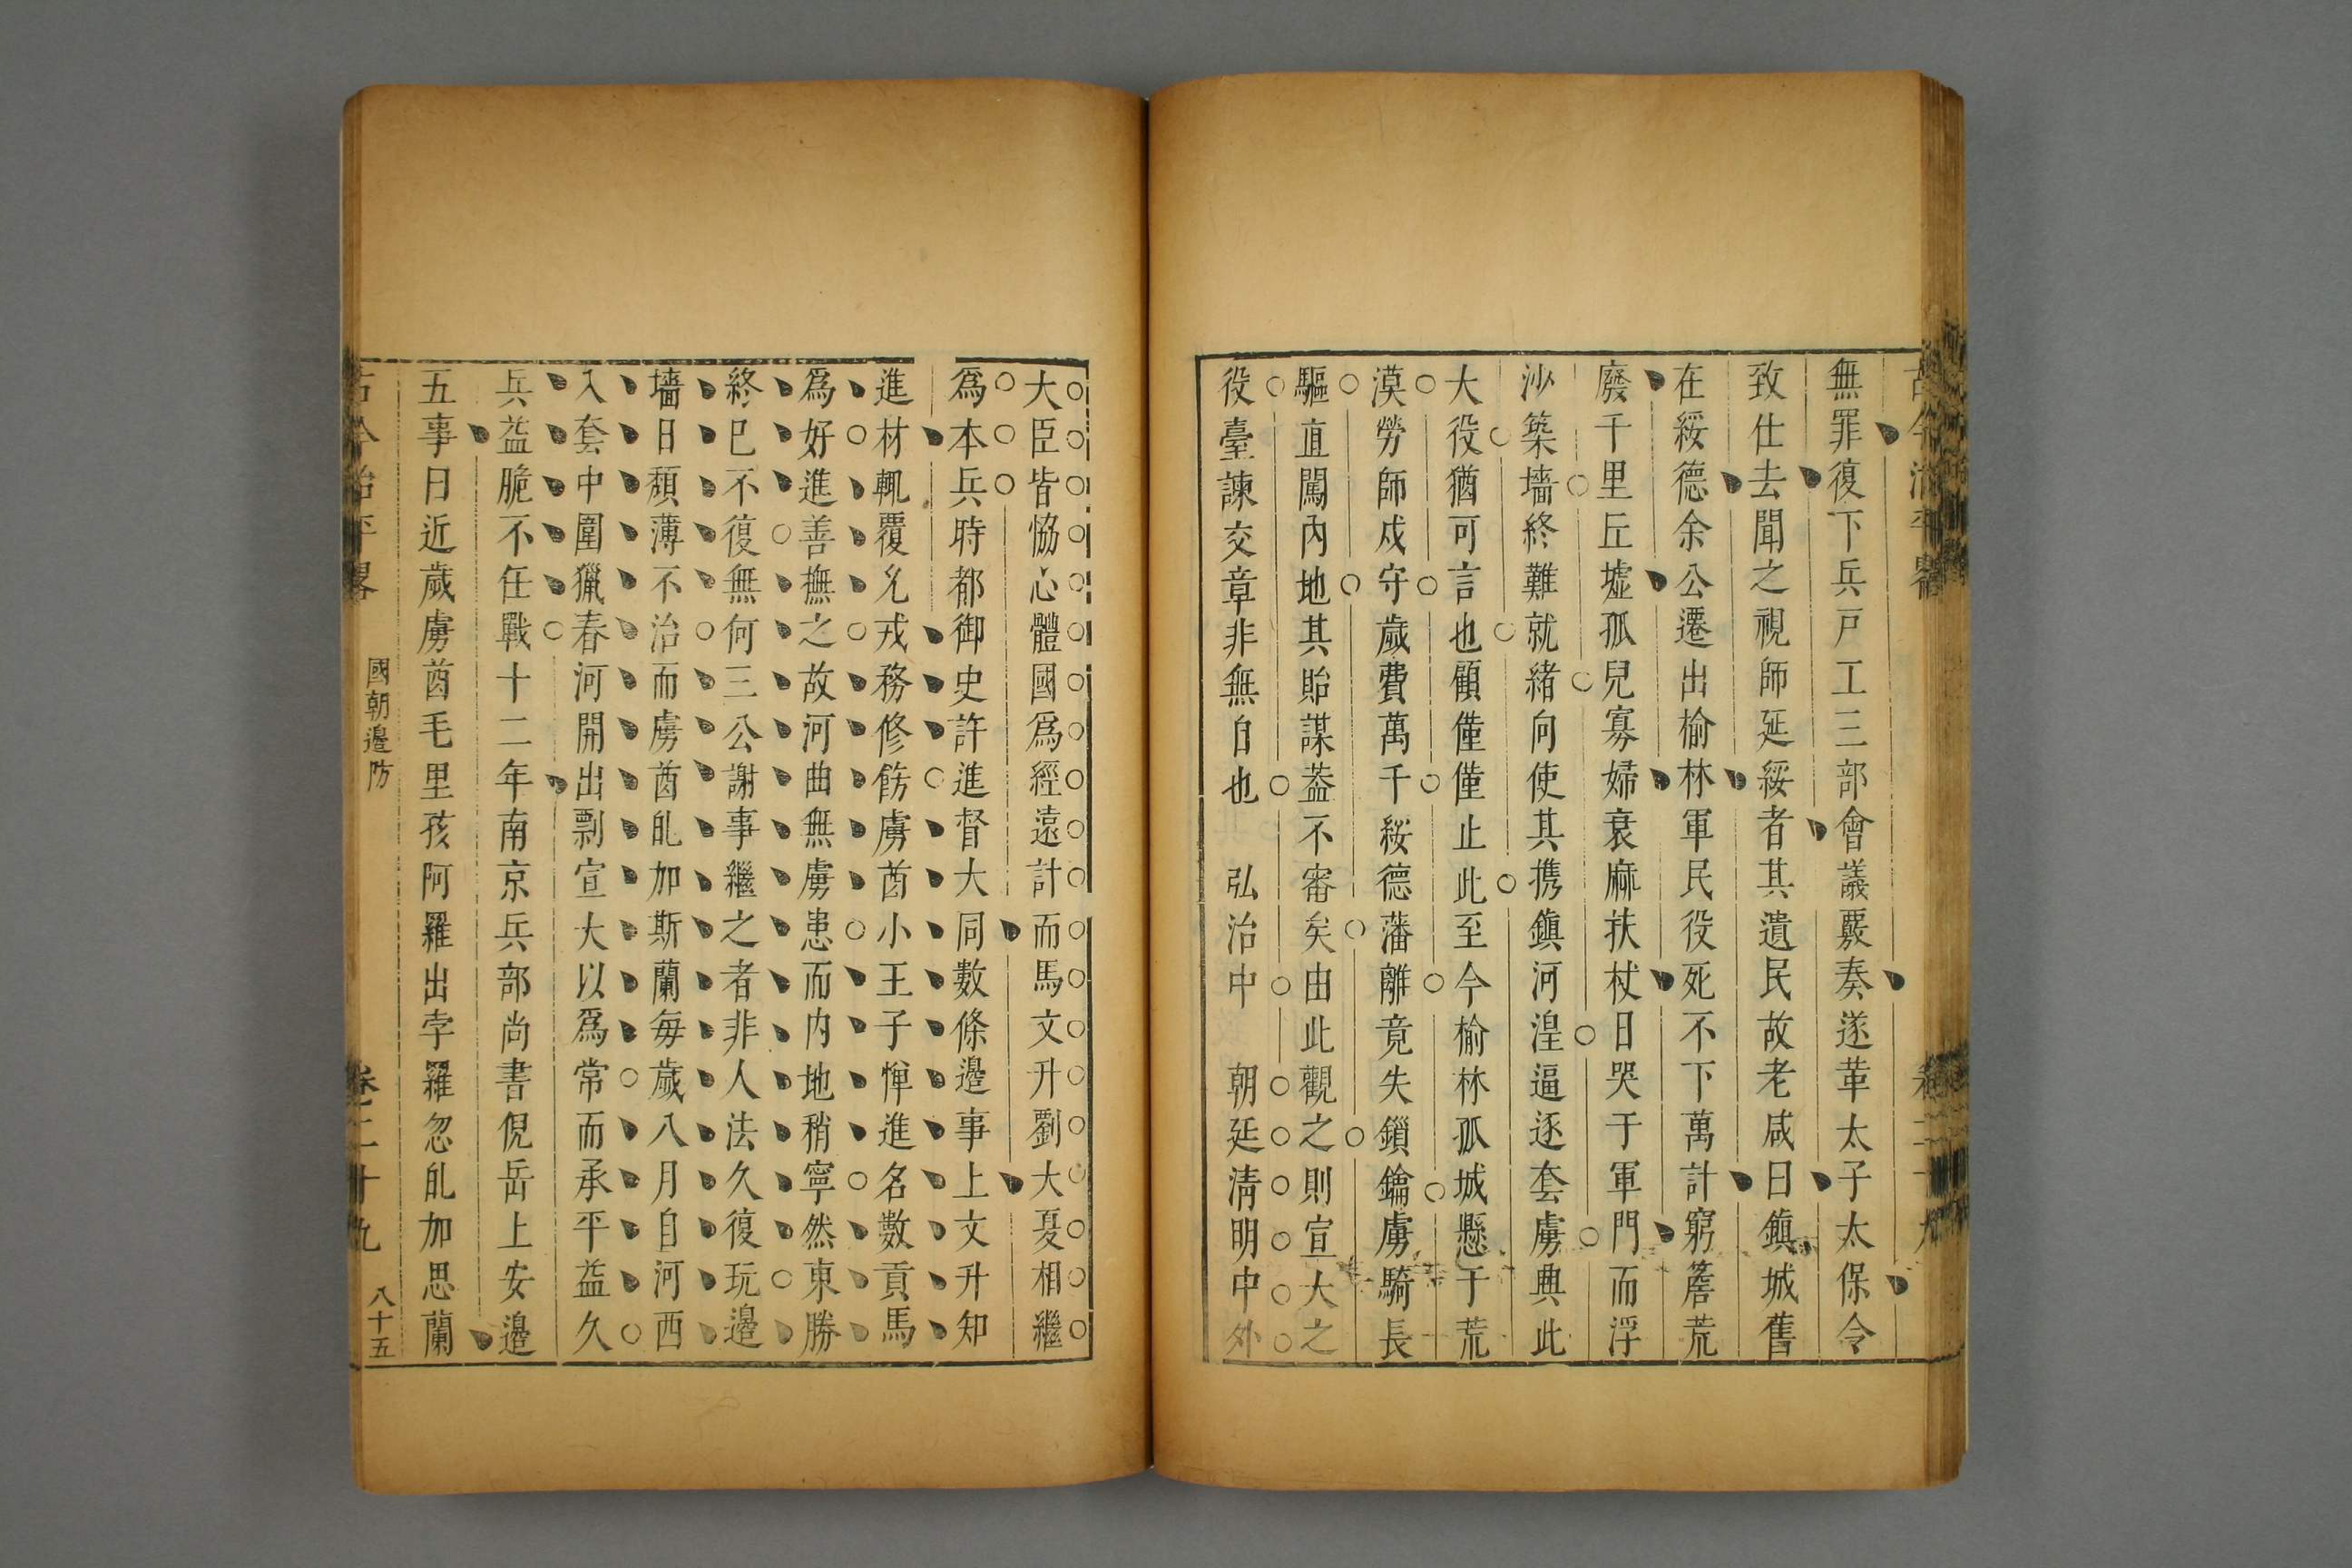 無罪復下兵戸工三部會議覈奏遂革太子太保令
致仕去聞之視師延綏者其遺民故老咸曰鎮城舊
在綏德余公遷出榆林軍民役死不下萬計窮簷荒
廢千里丘墟孤兒寡婦衰麻扶杖日哭于軍門而浮
沙築墻終難就緒向使其携鎮河湟逼逐套虜興此
大役猶可言也顧僅僅止此至今榆林孤城懸于荒
漠勞師戍守歲費萬千綏德藩離竟失鎖鑰虜騎長
驅直闖內地其貽謀葢不審矣由此觀之則宣大之
役臺諫交章非無自也 弘治中 朝廷清明中外
大臣皆恊心體國爲經遠計而馬文升劉大夏相繼
爲本兵時都御史許進督大同數條邊事上文升知
進材輒覆允戎務修飭虜酋小王子憚進名數貢馬
爲好進善撫之故河曲無虜患而内地稍寧然東勝
終已不復無何三公謝事繼之者非人法久復玩邊
墻日頽薄不治而虜酋乩加斯蘭每歲八月自河西
入套中圍獵春河開出剽宣大以爲常而承平益久
兵益脆不任戰十二年南京兵部尚書倪岳上安邊
五事曰近歲虜酋毛里孩阿羅出孛羅忽乩加思蘭
古今治平畧 國朝邊防 卷二十九 八十五